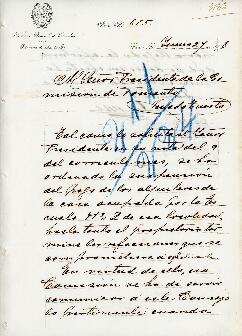 655
Al Señor Presidente de la Co-
mision de
Tal como lo solicita el Señor
Presidente en su nota del 9
del corriente mes, se ha
ordenado la suspension
del pago de los alquileres de
la casa ocupada por la Es-
cuela Nº 2 de esa localidad,
hasta tanto el propietario ter-
mine las refacciones que se
comprometió a
En virtud de ello, esa
Comision se ha de servir
comunicar a este Consejo
lo pertinente; cuando